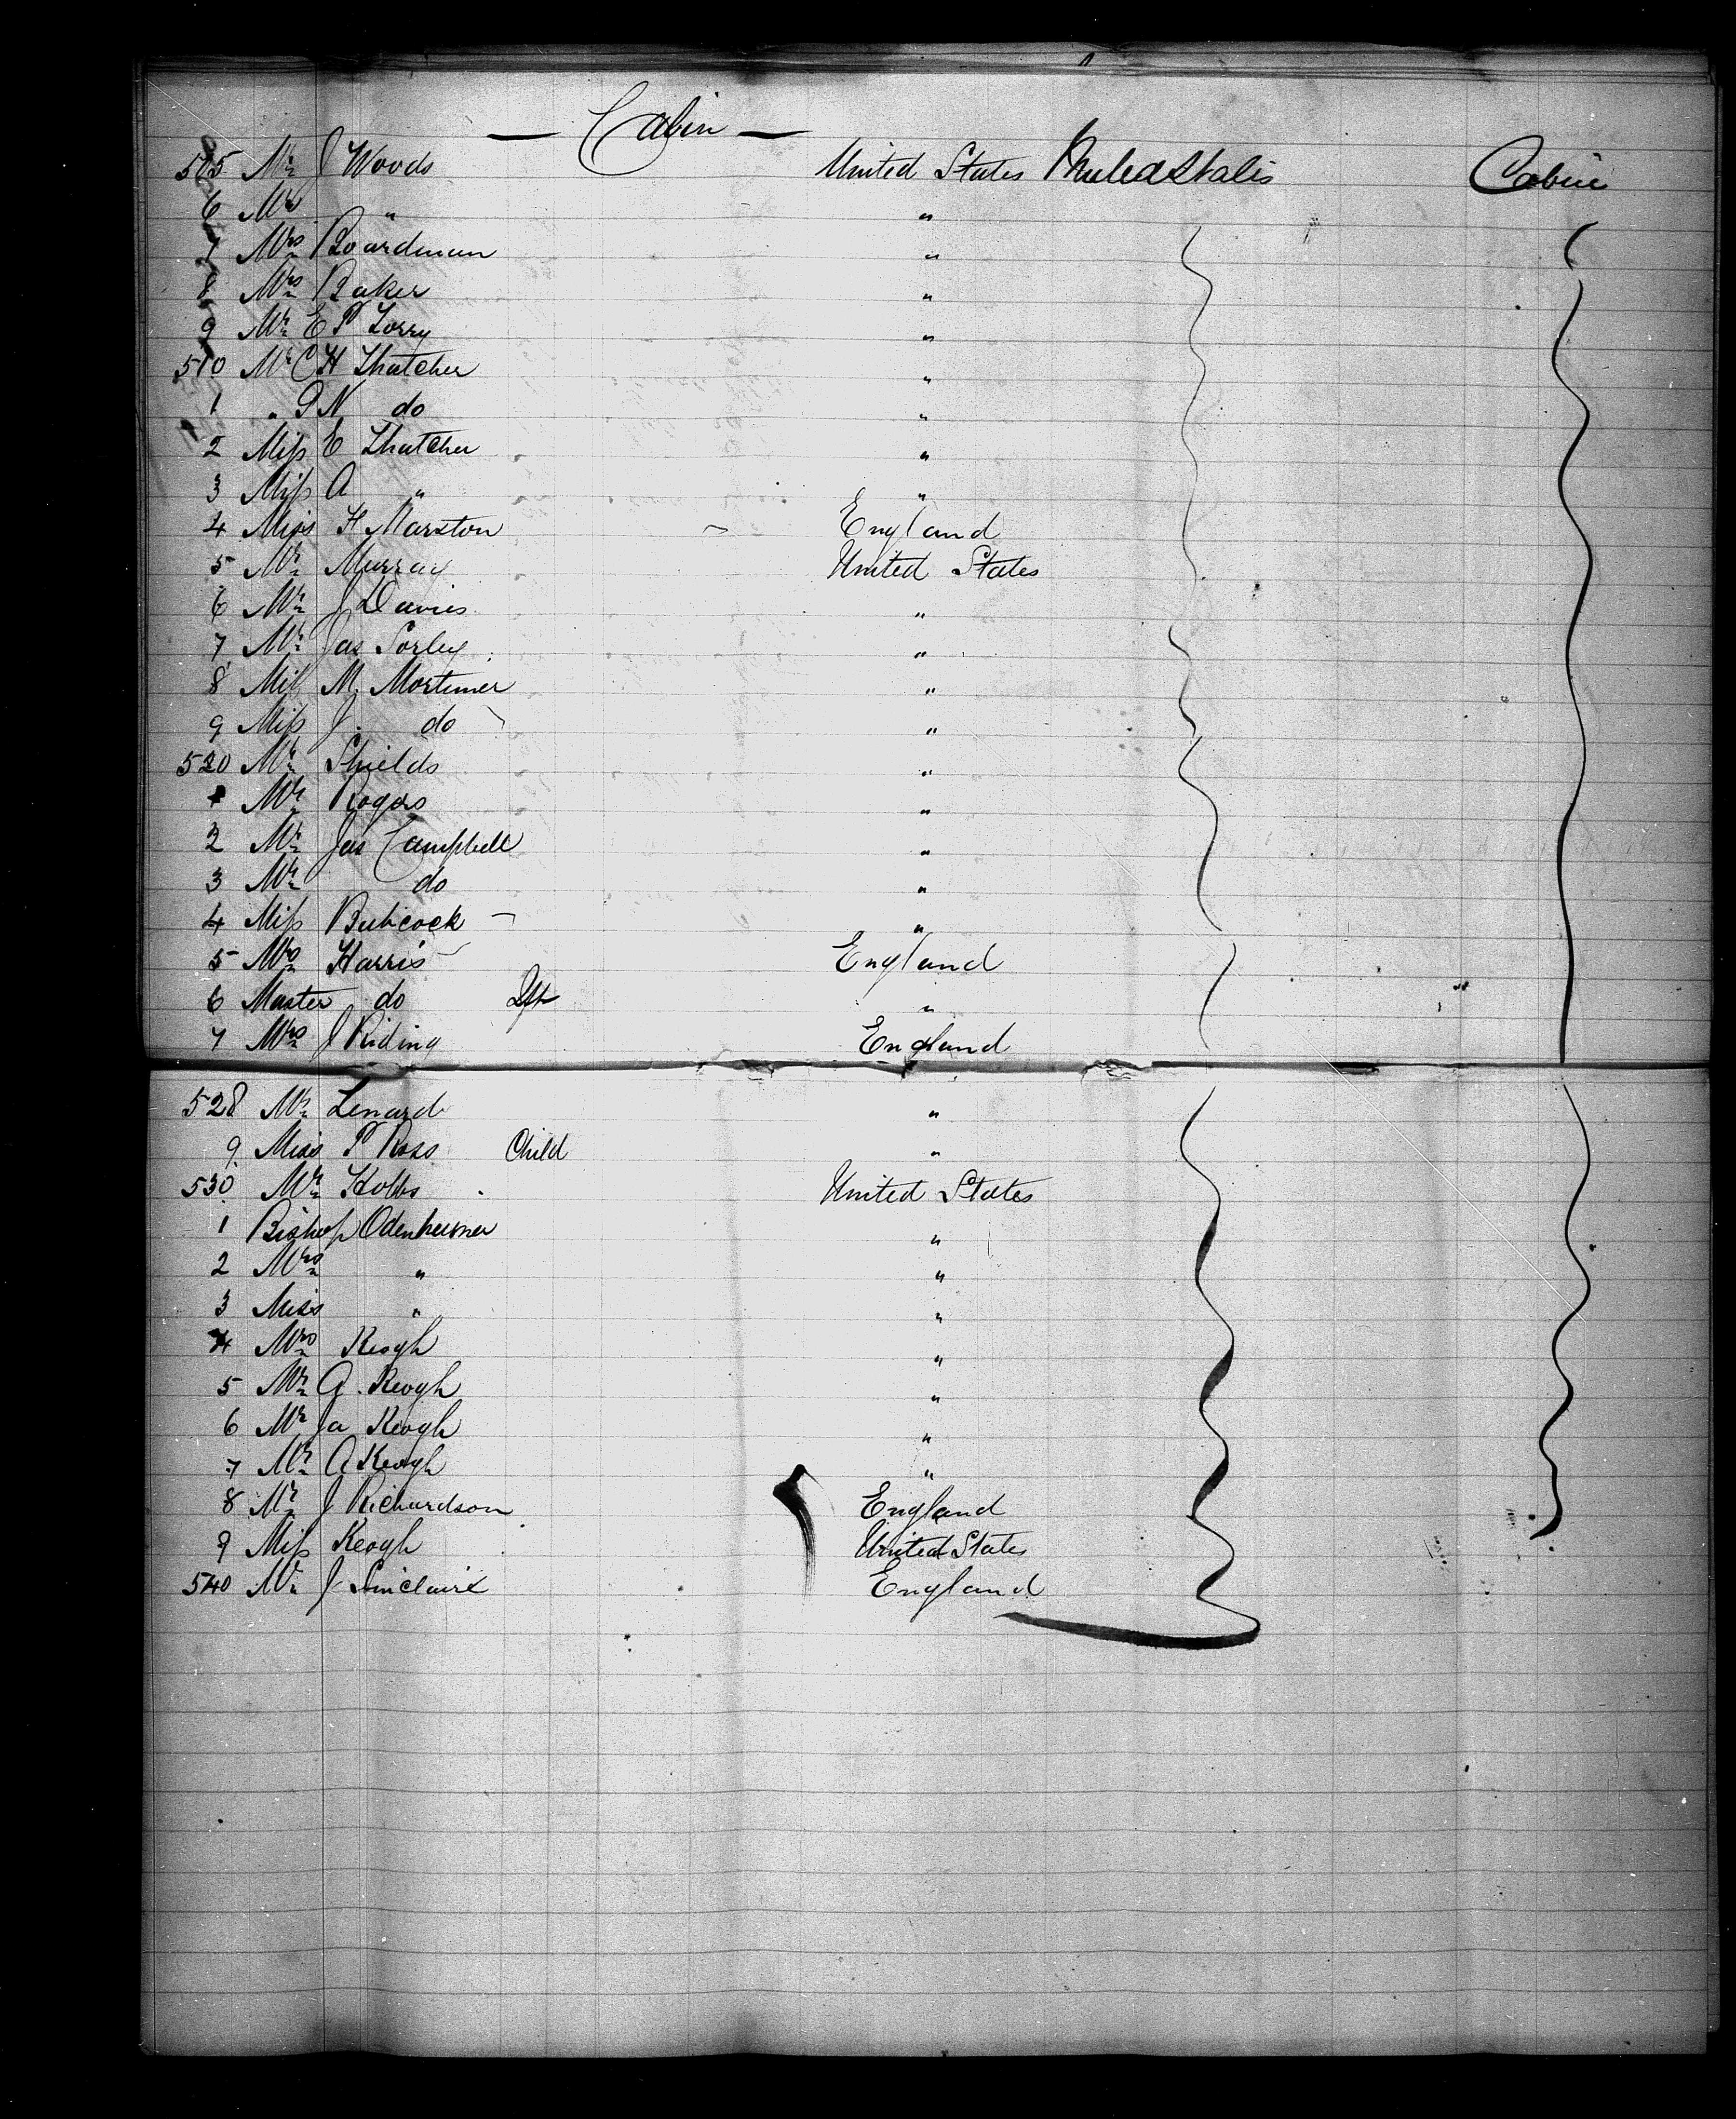 — Cabin —
505 Mr J Woods United States United States Cabin
6 Mr " "
7 Mrs Boardman "
8 Mrs Baker "
9 Mr E P Torry "
510 Mr C H Thatcher "
1 " P N do "
2 Miss E Thatcher "
3 Miss A " "
4 Miss H Marston England
5 Mr Murray United States
6 Mr J Davies "
7 Mr Jas Sorley "
8 Miss M Mortimer "
9 Miss J do "
520 Mr Shields "
1 Mr Rogers "
2 Mr Jas Campbell "
3 Mr do "
4 Miss Babcock "
5 Mrs Harris England
6 Master do "
7 Mrs J Riding England
528 Mr Lenard "
9 Miss P Ross Child "
530 Mr Hobbs United States
1 Bishop Odenheimer "
2 Mrs " "
3 Miss " "
4 Mrs Keogh "
5 Mr G. Keogh "
6 Mr Ja Keogh "
7 Mr A Keogh "
8 Mr J Richardson England
9 Miss Keogh United States
540 Mr J Sinclaire England